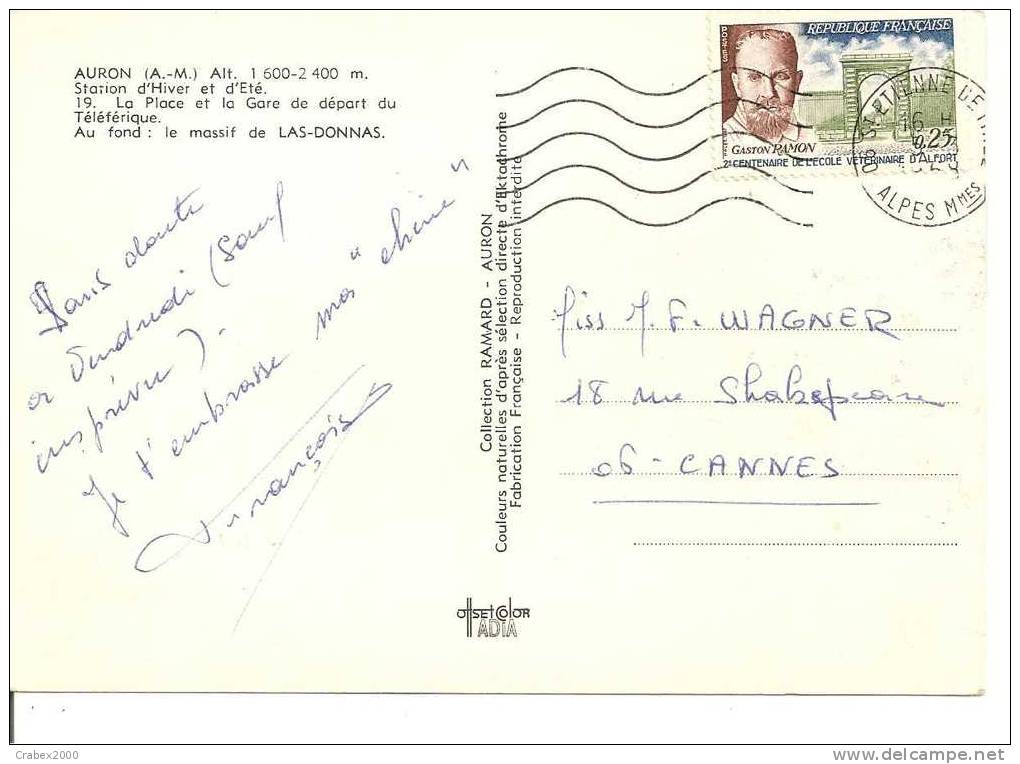 AURON (A.-M.) Alt. 1 600-2 400 m.
Station d'Hiver et d'Eté.
19. La Place et la Gare de départ du
Téléférique.
Au fond : le massif de LAS-DONNAS.
Sans doute
a Vendredi (sauf
imprévu).
Je t'embrasse ma "chérie"
François
Collection RAMARD - AURON
Couleurs naturelles d'après sélection directe d'Ektachrome
Fabrication Française - Reproduction interdite
OffSET COlOR
IADIA
POSTES
REPUBLIQUE FRANÇAISE
GASTON RAMON
0,25
2e CENTENAIRE DE L'ECOLE VETERINAIRE D'ALFORT
06 ST ETIENNE DE
16 H
ALPES Mmes
Miss M. F. WAGNER
18 rue Shakespeare
06 - CANNES
Crabex2000
www.delcampe.net